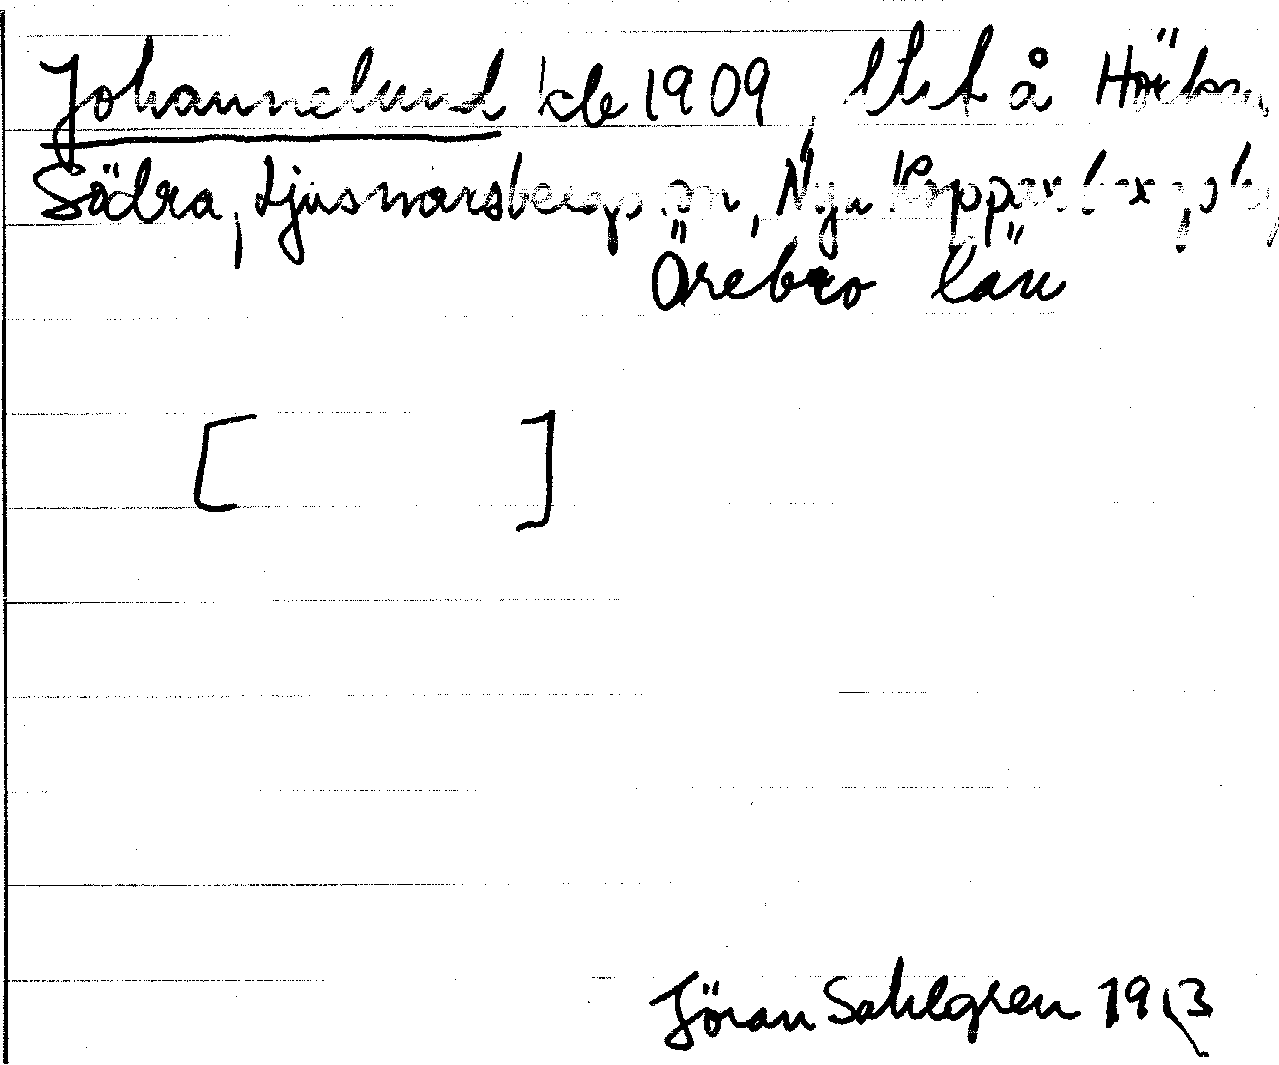 Johannelund kb 1909, lht å Hörken
Södra, Ljusnarsbergs sn, Nya Kopparbergs bg,
Örebro län
[ ]
Jöran Sahlgren 1913